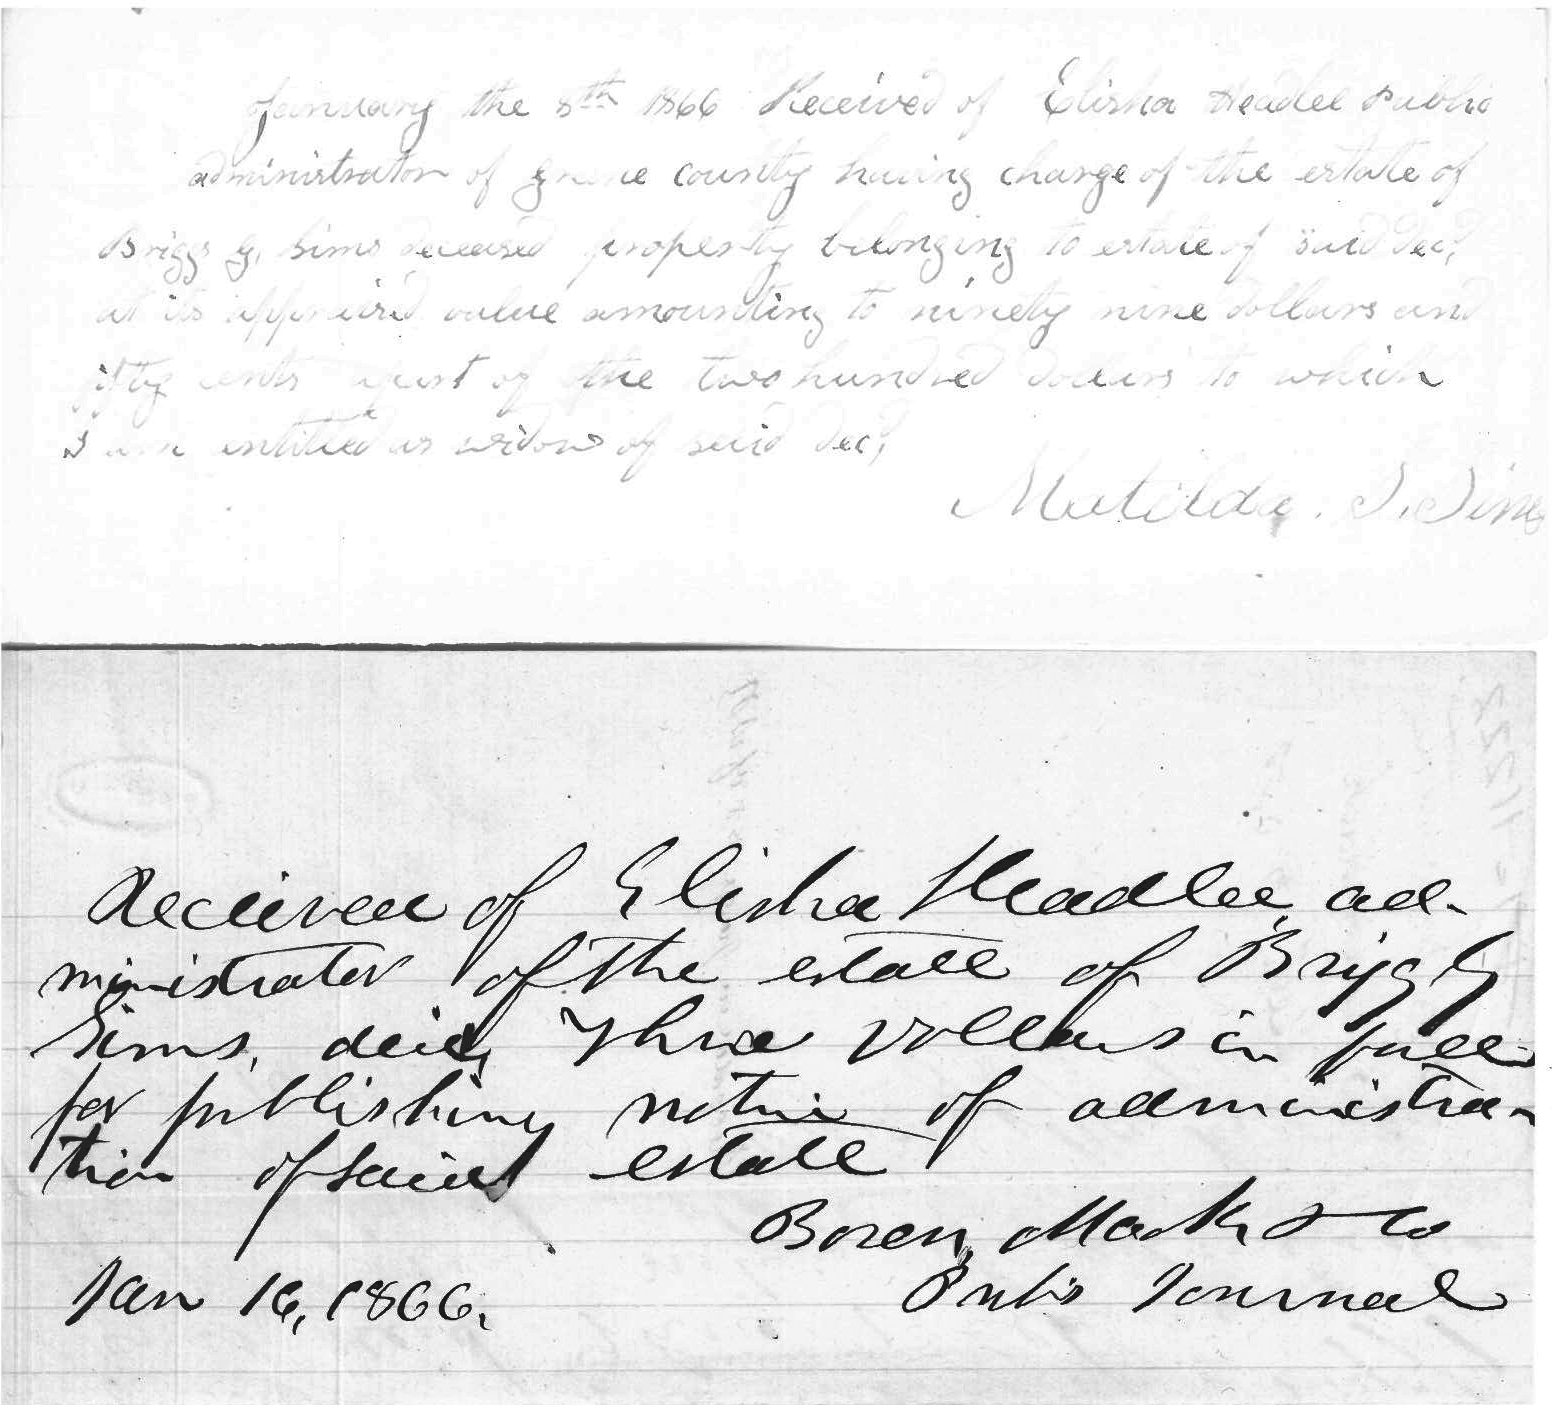 January the 8th 1866 Received of Elisha Headlee Public
administrator of Greene county having charge of the estate of
Briggs G. Sims deceased property belonging to estate of said Dec,
at its appraisd value amounting to ninety nine dollars and
fifty cents apart of the two hundred dollars to which
I am entitled as widow of said Dec,
Matilda. S. Sims
Received of Elisha Headlee, ad-
ministrator of the estate of Briggs G
Sims, dec'd, Three Dollars in full
for publishing notice of administra-
tion of said estate
Boren, Mack & Co
Jan 16, 1866.
Pub's Journal